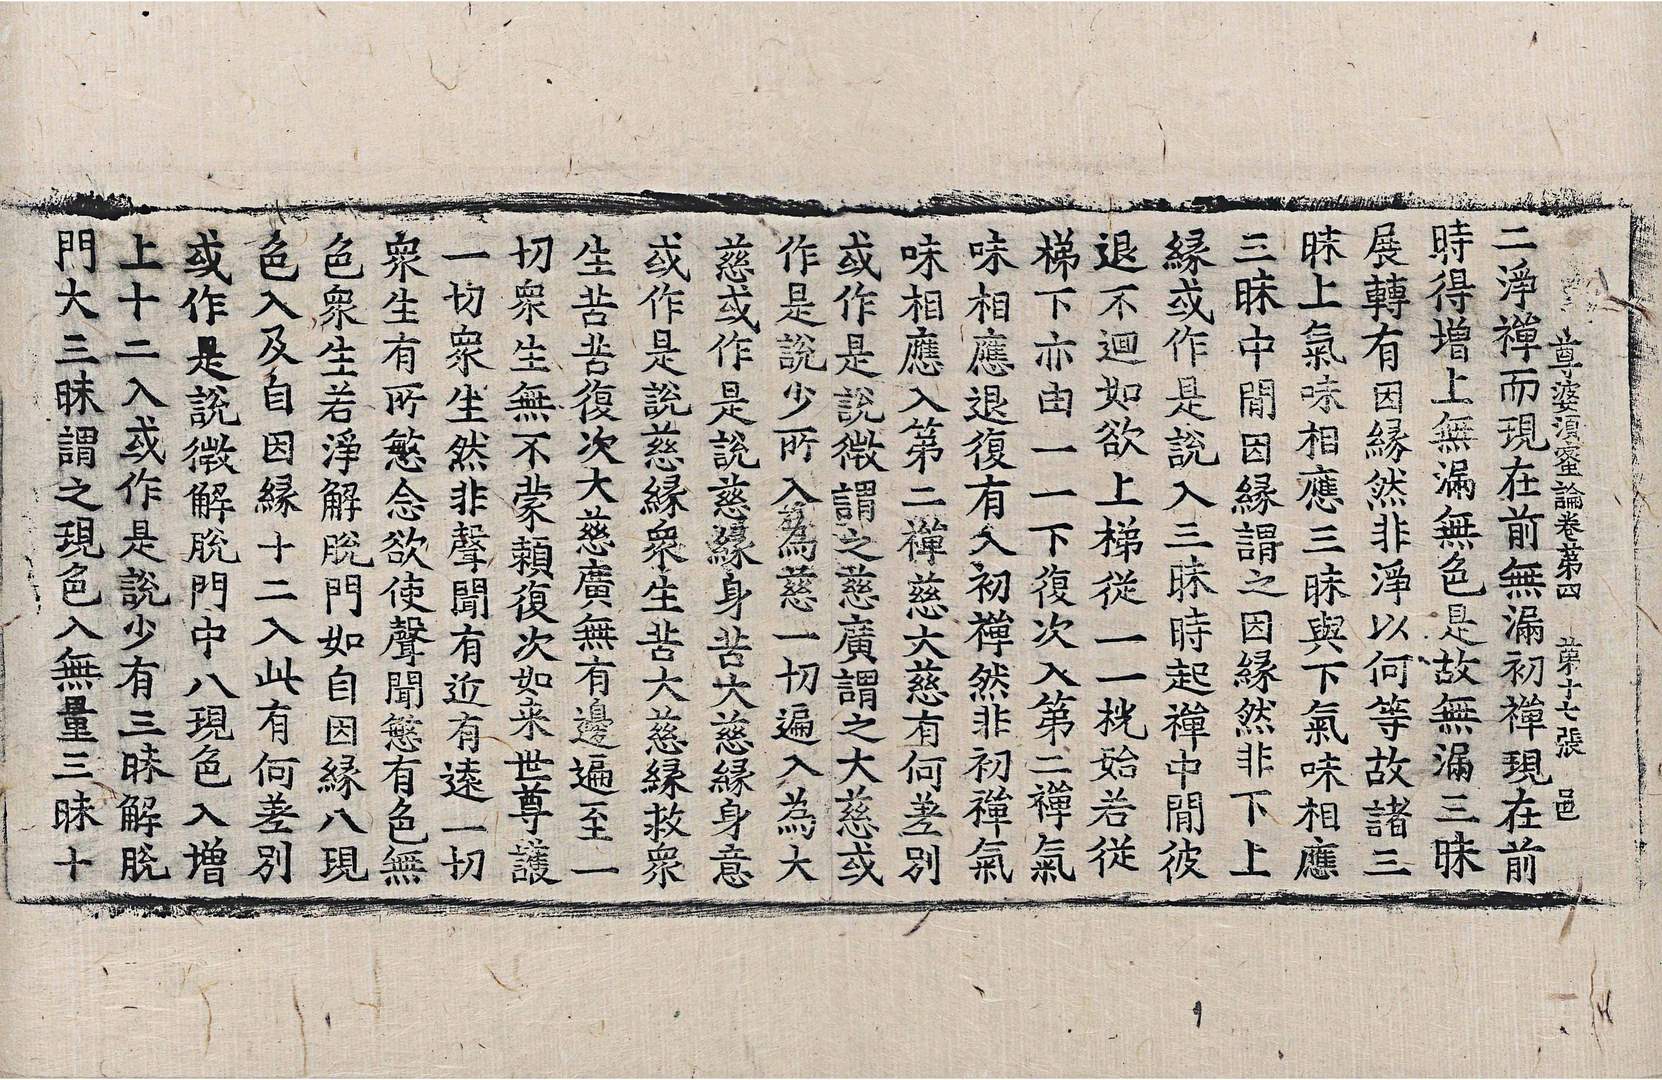 尊婆須蜜論卷第四 第十七張 邑
二淨禪而現在前無漏初禪現在前
時得增上無漏無色是故無漏三昧
展轉有因緣然非淨以何等故諸三
昧上氣味相應三昧與下氣味相應
三昧中間因緣謂之因緣然非下上
緣或作是說入三昧時起禪中間彼
退不迴如欲上梯從一一桄始若從
梯下亦由一一下復次入第二禪氣
味相應退復有入初禪然非初禪氣
味相應入第二禪慈大慈有何差別
或作是說微謂之慈廣謂之大慈或
作是說少所入為慈一切遍入為大
慈或作是說慈緣身苦大慈緣身意
或作是說慈緣眾生苦大慈緣救眾
生苦苦復次大慈廣無有邊遍至一
切眾生無不蒙賴復次如來世尊護
一切眾生然非聲聞有近有遠一切
眾生有所慜念欲使聲聞慜有色無
色眾生若淨解脫門如自因緣八現
色入及自因緣十二入此有何差別
或作是說微解脫門中八現色入增
上十二入或作是說少有三昧解脫
門大三昧謂之現色入無量三昧十